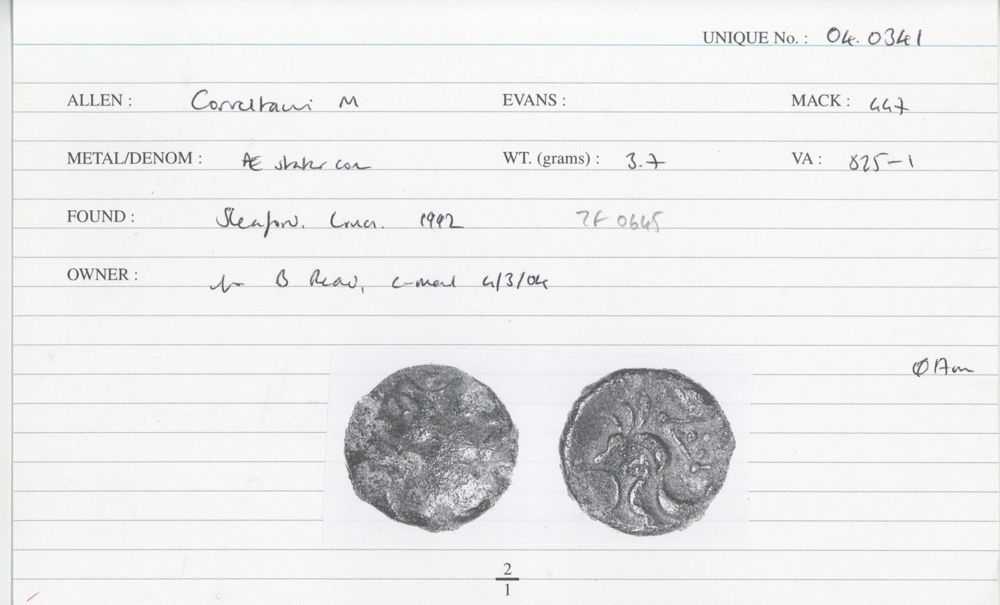 UNIQUE No. : 04.0341
ALLEN : Corieltauvi M EVANS : MACK : 447
METAL/DENOM : Æ stater core WT. (grams) : 3.7 VA : 825-1
FOUND : Sleaford. Lincs. 1992 7F 0645
OWNER : B Read, e-mail 4/3/04
Ø 17mm
2
1